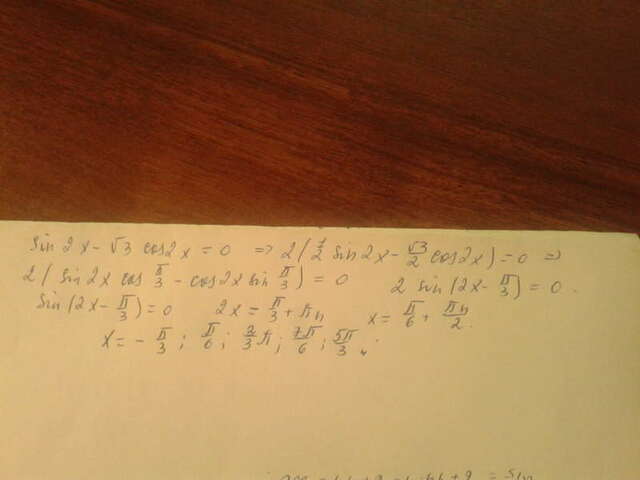 sin 2x - √3 cos2x = 0 => 2(1/2 sin 2x - √3/2 cos2x) = 0 =>
2(sin 2x cos π/3 - cos2x sin π/3) = 0 2 sin(2x - π/3) = 0.
sin(2x - π/3) = 0 2x = π/3 + πn x = π/6 + πn/2.
x = - π/3; π/6; 2/3π; 7π/6; 5π/3.